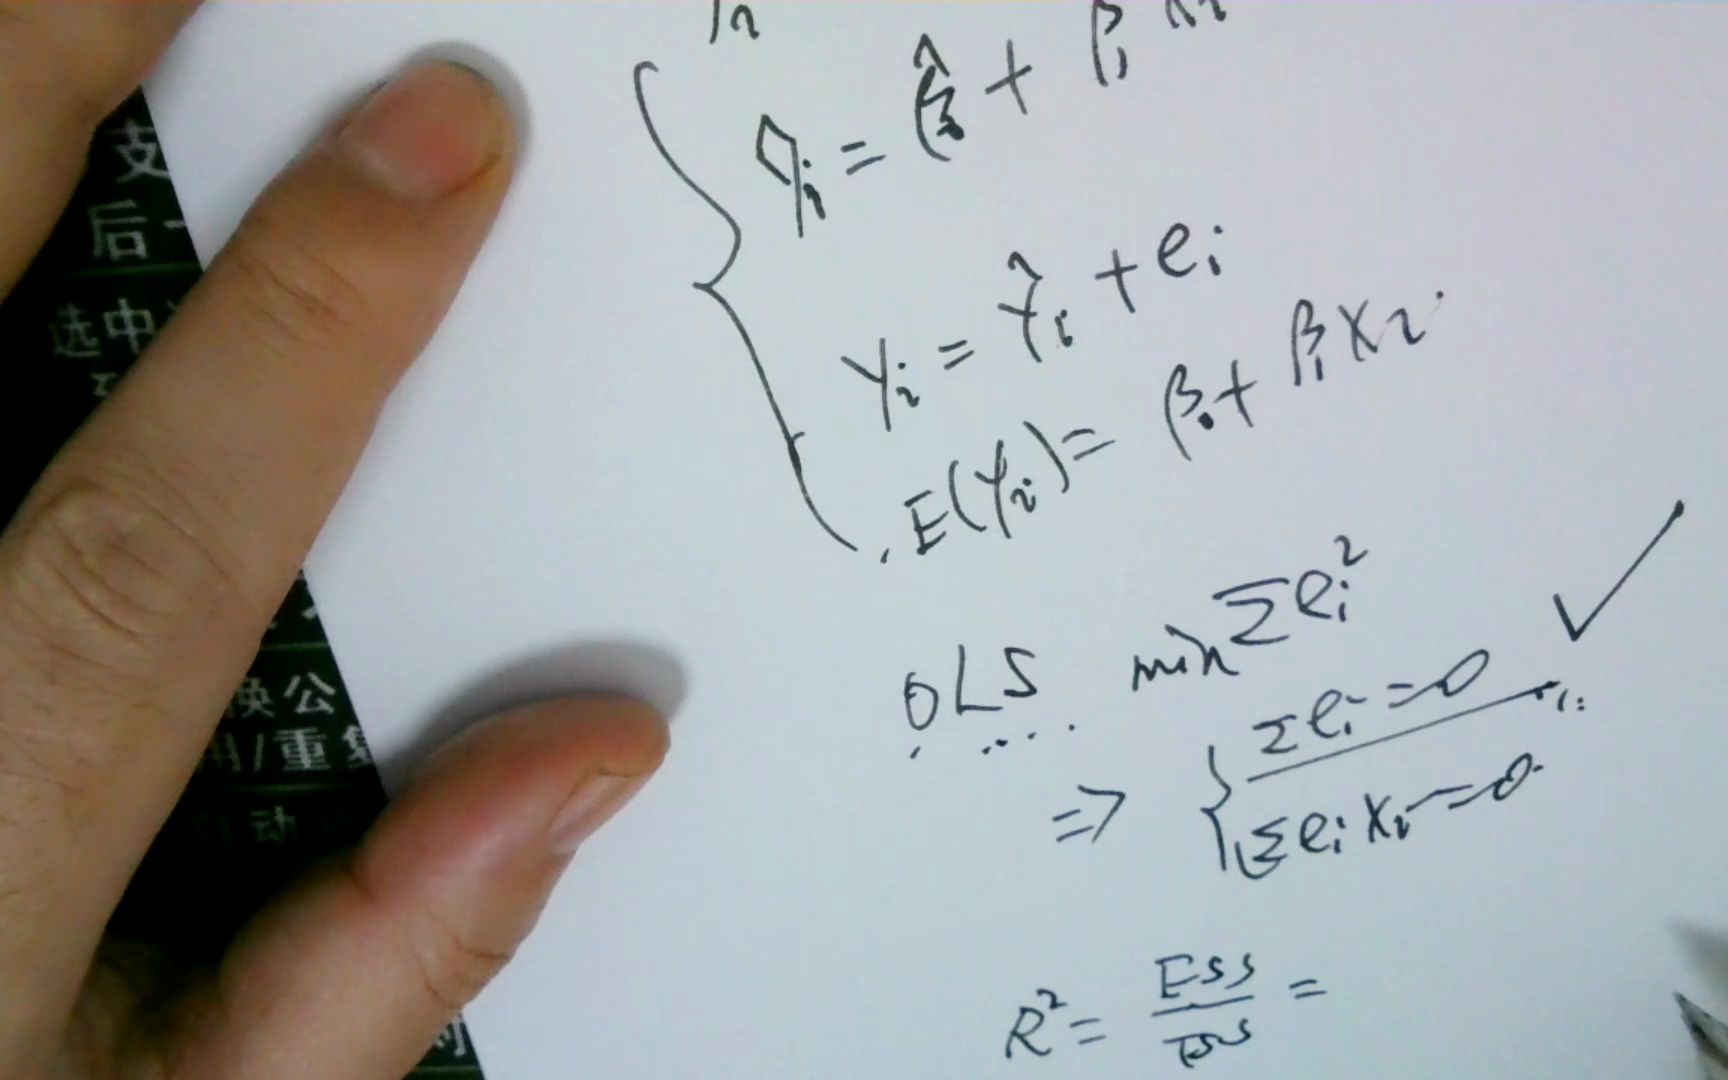 ŷᵢ = β̂₀ + β₁
yᵢ = ŷᵢ + eᵢ
E(yᵢ) = β₀ + β₁xᵢ
OLS min Σeᵢ²
⇒ { Σeᵢ = 0
Σeᵢxᵢ = 0
R² = ESS/TSS =
支
后一
选中
换公
用/重复
自动